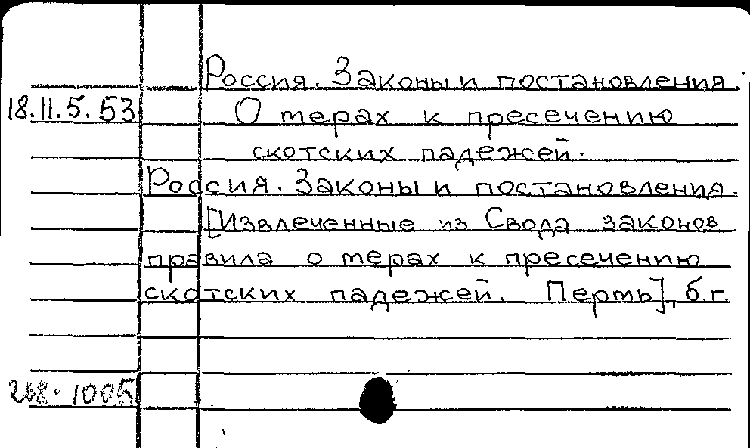 Россия. Законы и постановления.
18.11.5.53 О мерах к пресечению
скотских падежей.
Россия. Законы и постановления.
[Извлеченные из Свода законов
правила о мерах к пресечению
скотских падежей. Пермь], б.г.
268-1005